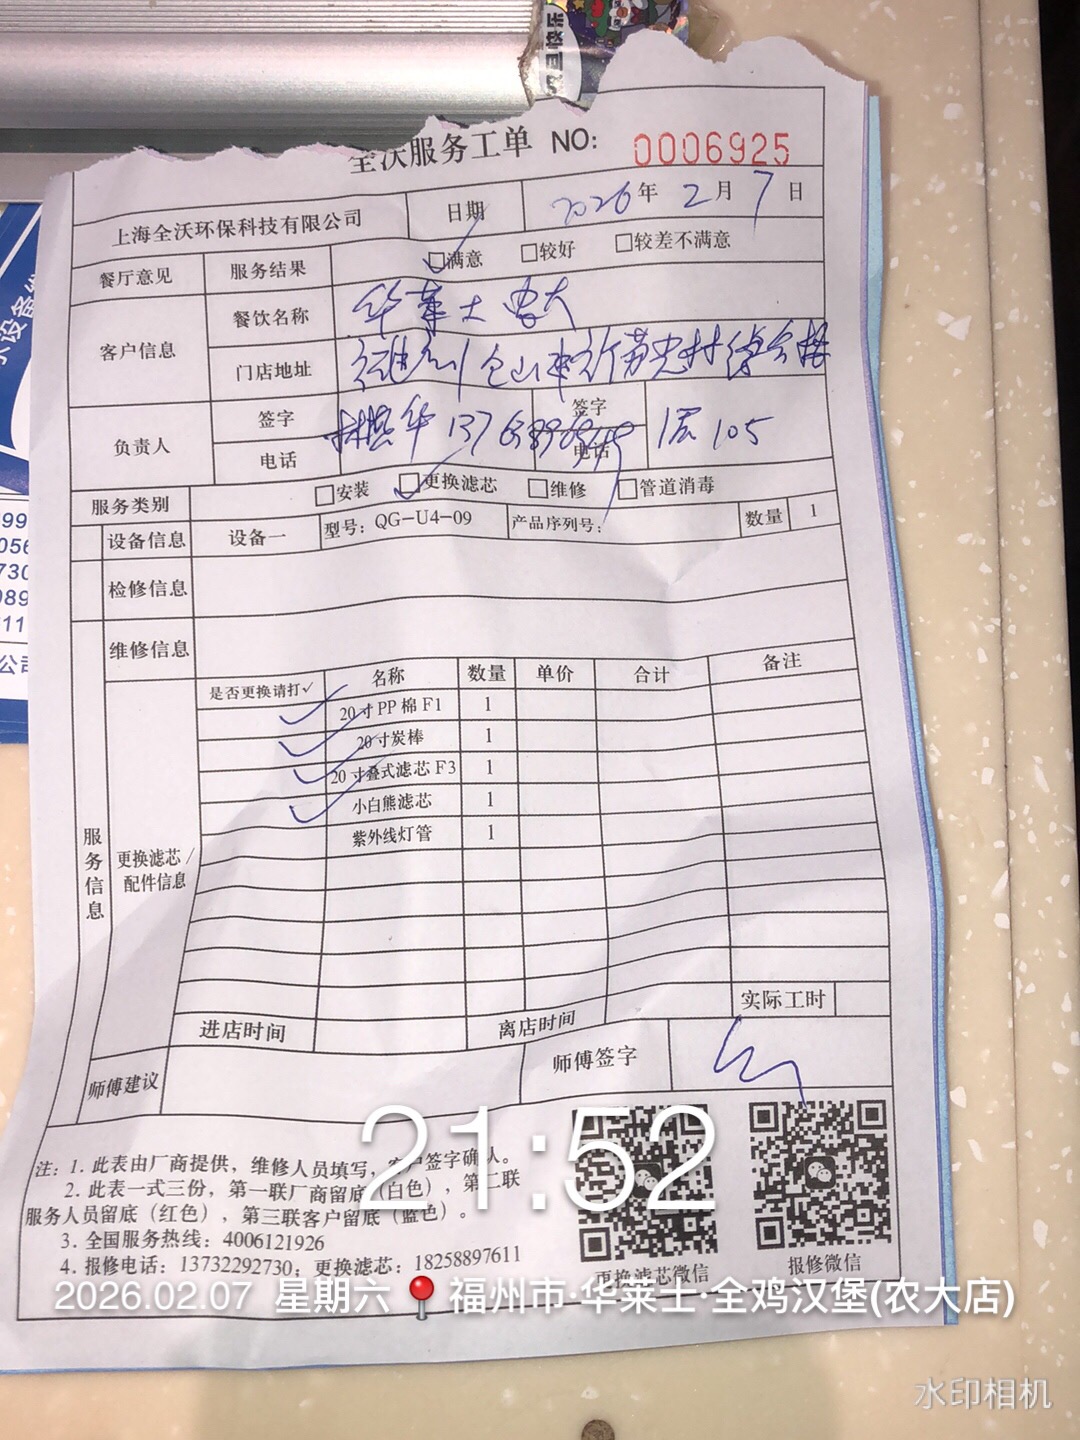 全沃服务工单 NO: 0006925
上海全沃环保科技有限公司 日期 2026年 2月 7日
餐厅意见 服务结果 ☑满意 □较好 □较差不满意
客户信息 餐饮名称 华莱士 农大
门店地址 仓山
负责人 签字 签字
电话 电话 1层 105
服务类别 □安装 ☑更换滤芯 □维修 □管道消毒
设备信息 设备一 型号: QG-U4-09 产品序列号: 数量 1
检修信息
维修信息
服务信息
更换滤芯/配件信息
是否更换请打✓ 名称 数量 单价 合计 备注
✓ 20寸PP棉F1 1
✓ 20寸炭棒 1
✓ 20寸叠式滤芯F3 1
✓ 小白熊滤芯 1
紫外线灯管 1
实际工时
进店时间 离店时间
师傅建议 师傅签字
注: 1. 此表由厂商提供，维修人员填写，客户签字确认。
2. 此表一式三份，第一联厂商留底（白色），第二联
服务人员留底（红色），第三联客户留底（蓝色）。
3. 全国服务热线: 4006121926
4. 报修电话: 13732292730; 更换滤芯: 18258897611
更换滤芯微信 报修微信
21:52
2026.02.07 星期六 福州市·华莱士·全鸡汉堡(农大店)
水印相机